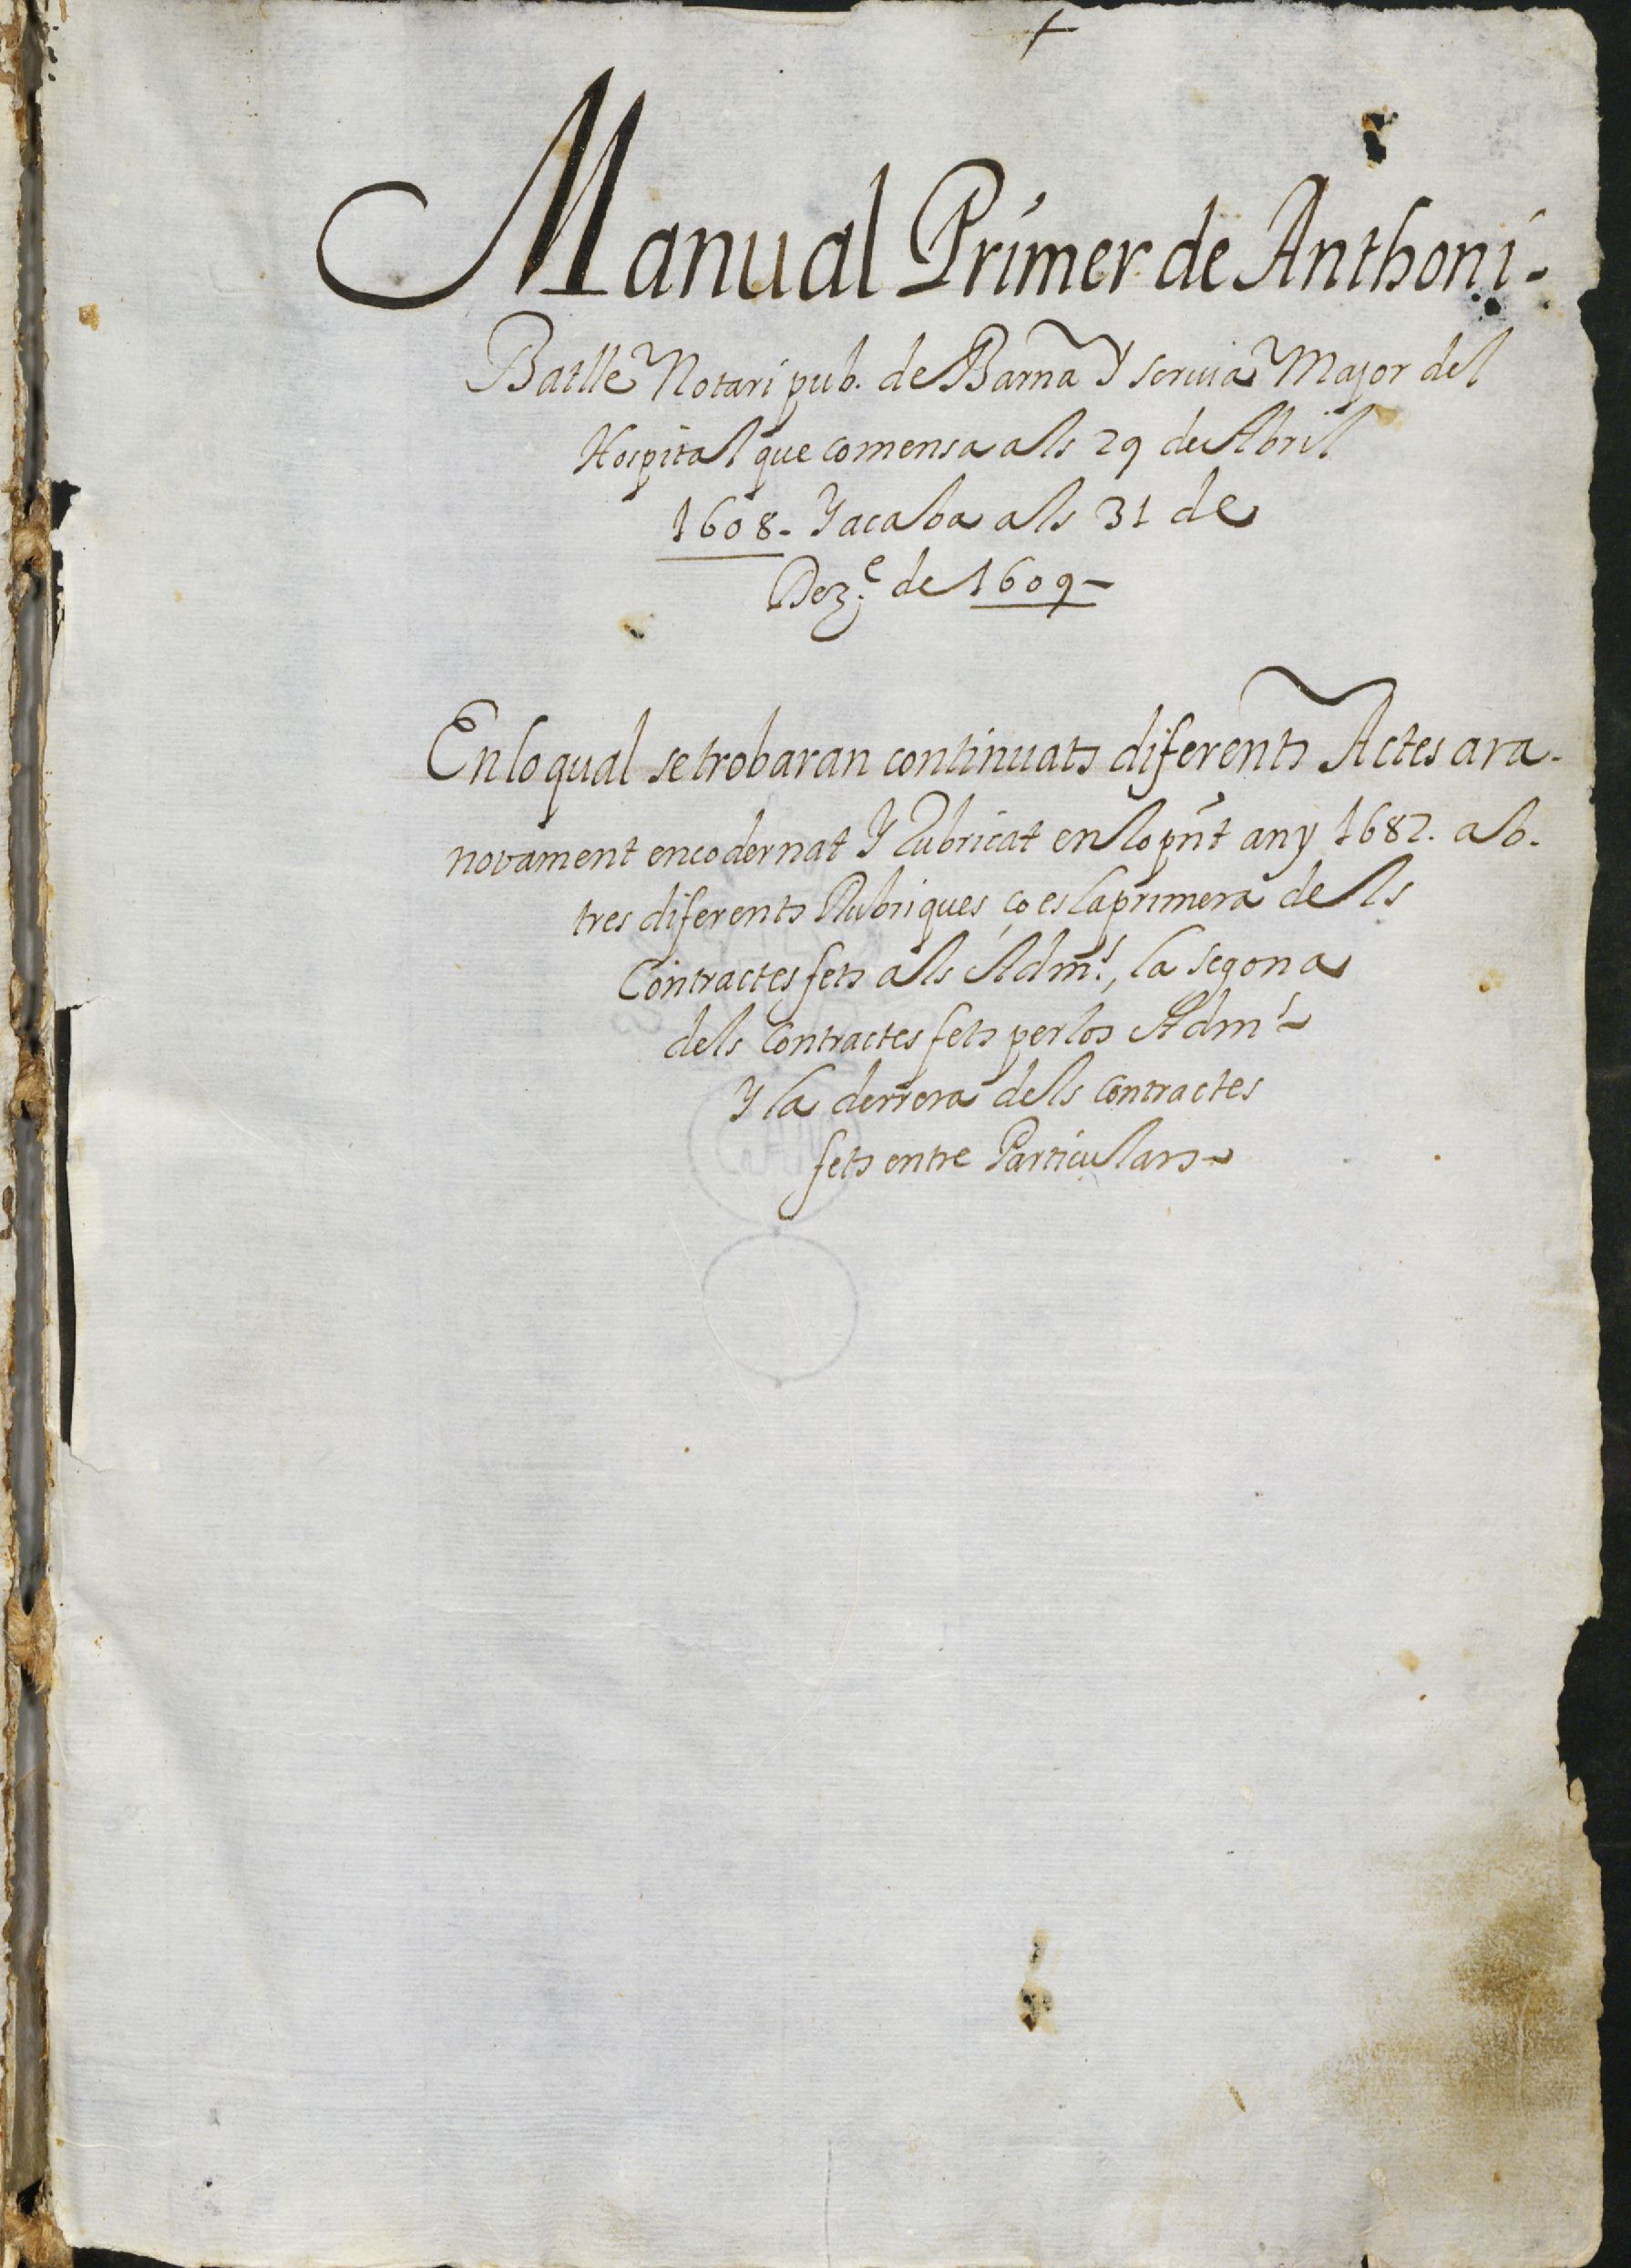 +
Manual Primer de Anthoni-
Batlle Notari pub. de Barna Y scrivia Major del
Hospital que comensa als 29 de Abril
1608- Y acaba als 31 de
Dez.e de 1609-
En lo qual se trobaran continuats diferents Actes ara-
novament encodernat Y Rubricat en lo pnt any 1682. ab-
tres diferents Rubriques, ço es la primera dels
Contractes fets als Adm.s, la segona
dels Contractes fets per los Adm.s
Y la derrera dels Contractes
fets entre Particulars-